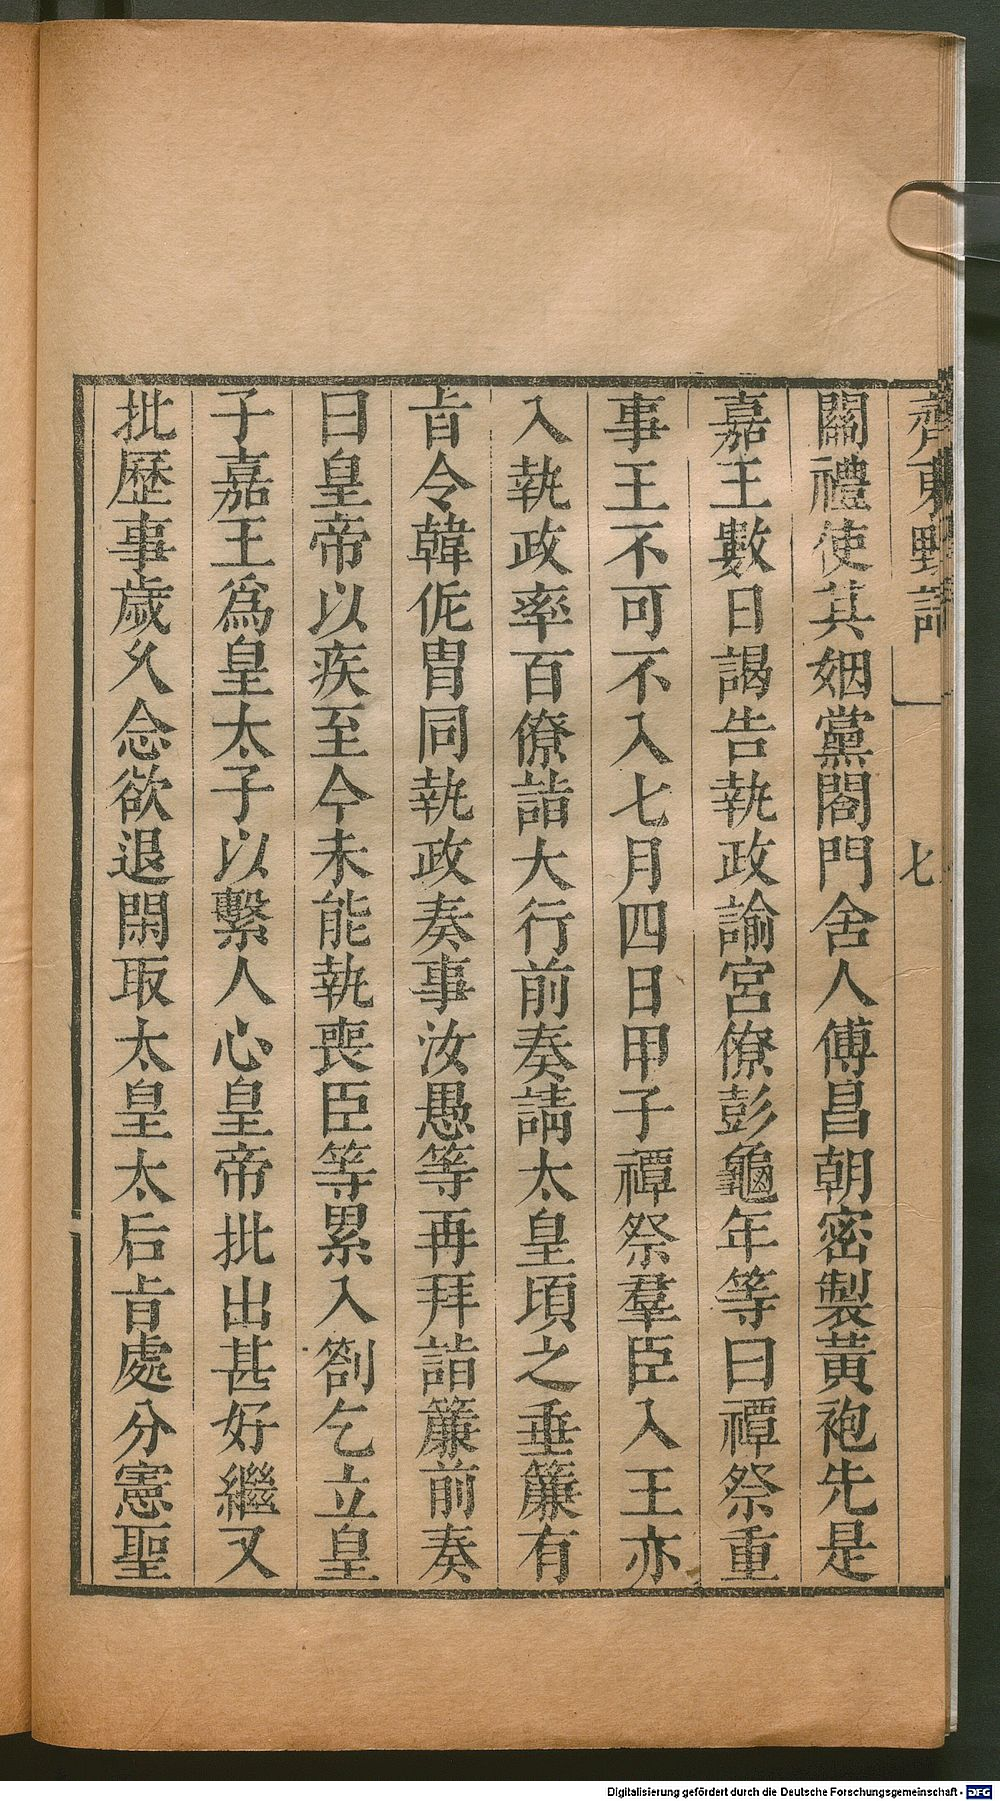 齊東野語 七
關禮使其姻黨閤門舍人傅昌朝密製黃袍先是
嘉王數日謁告執政諭宮僚彭龜年等曰禫祭重
事王不可不入七月四日甲子禫祭羣臣入王亦
入執政率百僚詣大行前奏請太皇頃之垂簾有
㫖令韓侂冑同執政奏事汝愚等再拜詣簾前奏
曰皇帝以疾至今未能執喪臣等累入劄乞立皇
子嘉王爲皇太子以繫人心皇帝批出甚好繼又
批歷事歲久念欲退閑取太皇太后㫖處分憲聖
Digitalisierung gefördert durch die Deutsche Forschungsgemeinschaft - DFG